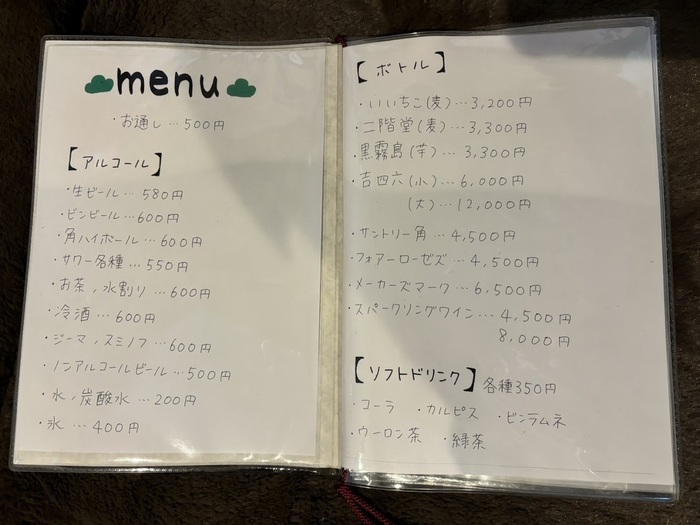 menu
・お通し…500円
【アルコール】
・生ビール…580円
・ビンビール…600円
・角ハイボール…600円
・サワー各種…550円
・お茶,水割り…600円
・冷酒…600円
・ジーマ,スミノフ…600円
・ノンアルコールビール…500円
・水,炭酸水…200円
・氷…400円
【ボトル】
・いいちこ(麦)…3,200円
・二階堂(麦)…3,300円
・黒霧島(芋)…3,300円
・吉四六(小)…6,000円
(大)…12,000円
・サントリー角…4,500円
・フォアーローゼズ…4,500円
・メーカーズマーク…6,500円
・スパークリングワイン…4,500円
8,000円
【ソフトドリンク】各種350円
・コーラ ・カルピス ・ビンラムネ
・ウーロン茶 ・緑茶